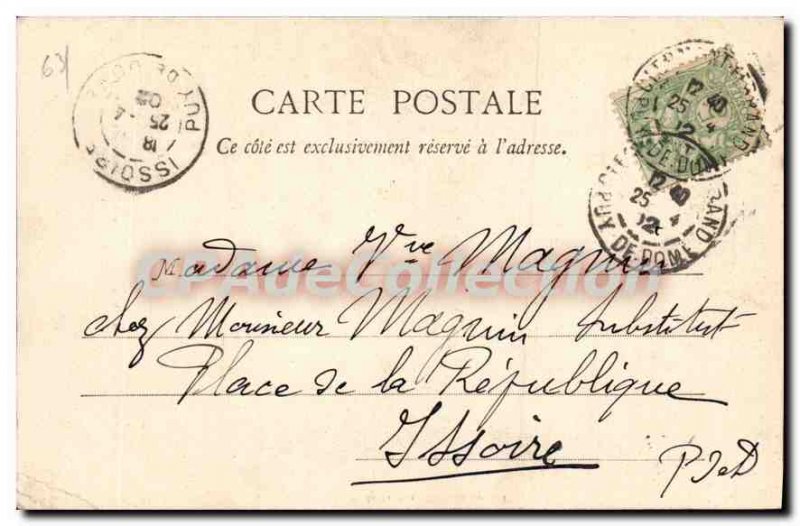 63
ISSOIRE PUY DE DOME
18
25 -4
02
CLERMONT-FERRAND PUY DE DOME
12 40
25 4
CARTE POSTALE
Ce côté est exclusivement réservé à l'adresse.
12 40
25 4
PUY DE DOME
CPAdeCollection
Madame Vve Magnin
chez Monsieur Magnin Substitut
Place de la République
Issoire
P de D